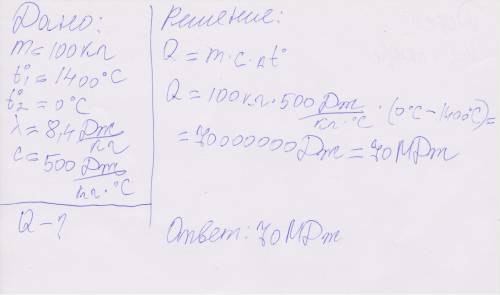 Дано:
m=100кг
t°1=1400°C
t°2=0°C
λ=8,4 Дж/кг
c=500 Дж/кг·°C
Q-?
Решение:
Q=m·c·Δt°
Q=100кг·500 Дж/кг·°C·(0°C-1400°C)=
=70000000Дж=70МДж
Ответ:70МДж